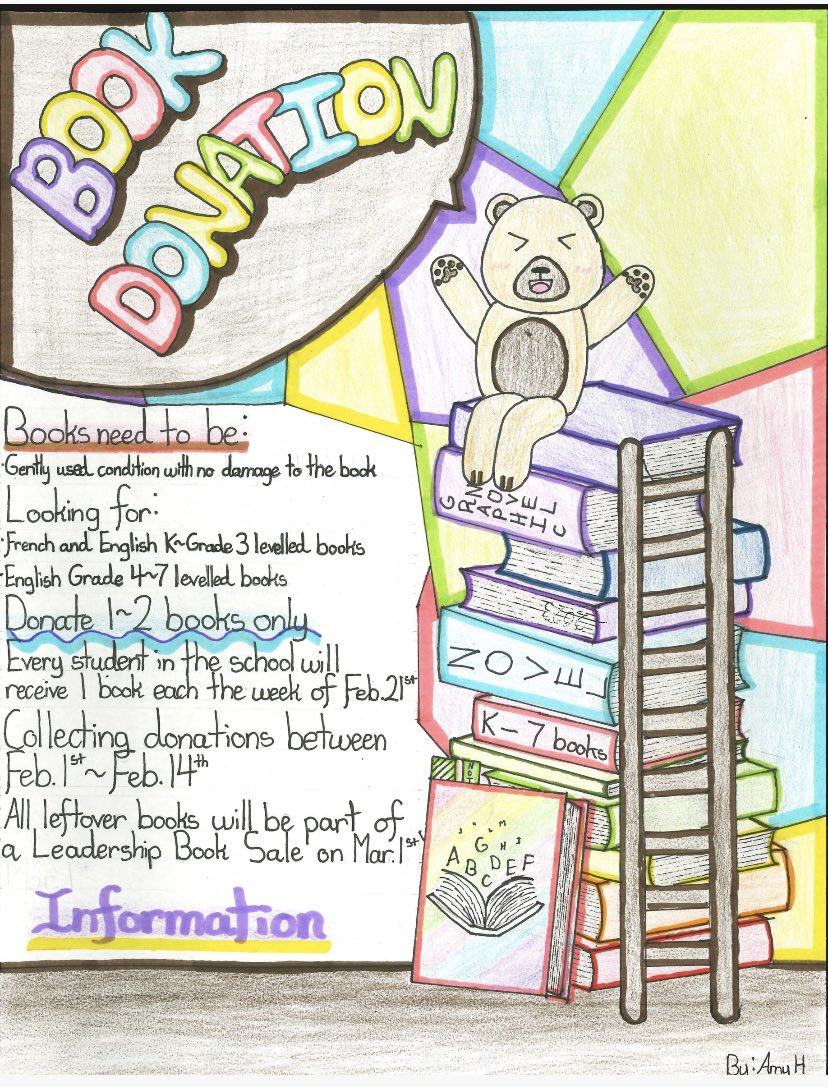 BOOK
DONATION
Books need to be:
·Gently used condition with no damage to the book
Looking for:
·French and English K~Grade 3 levelled books
·English Grade 4~7 levelled books
Donate 1~2 books only
Every student in the school will
receive 1 book each the week of Feb.21st
Collecting donations between
Feb.1st~Feb.14th
All leftover books will be part of
a Leadership Book Sale on Mar.1st
Information
GRAPHIC
NOVEL
NOVEL
K-7 books
A B C D E F G H
By:Amy H